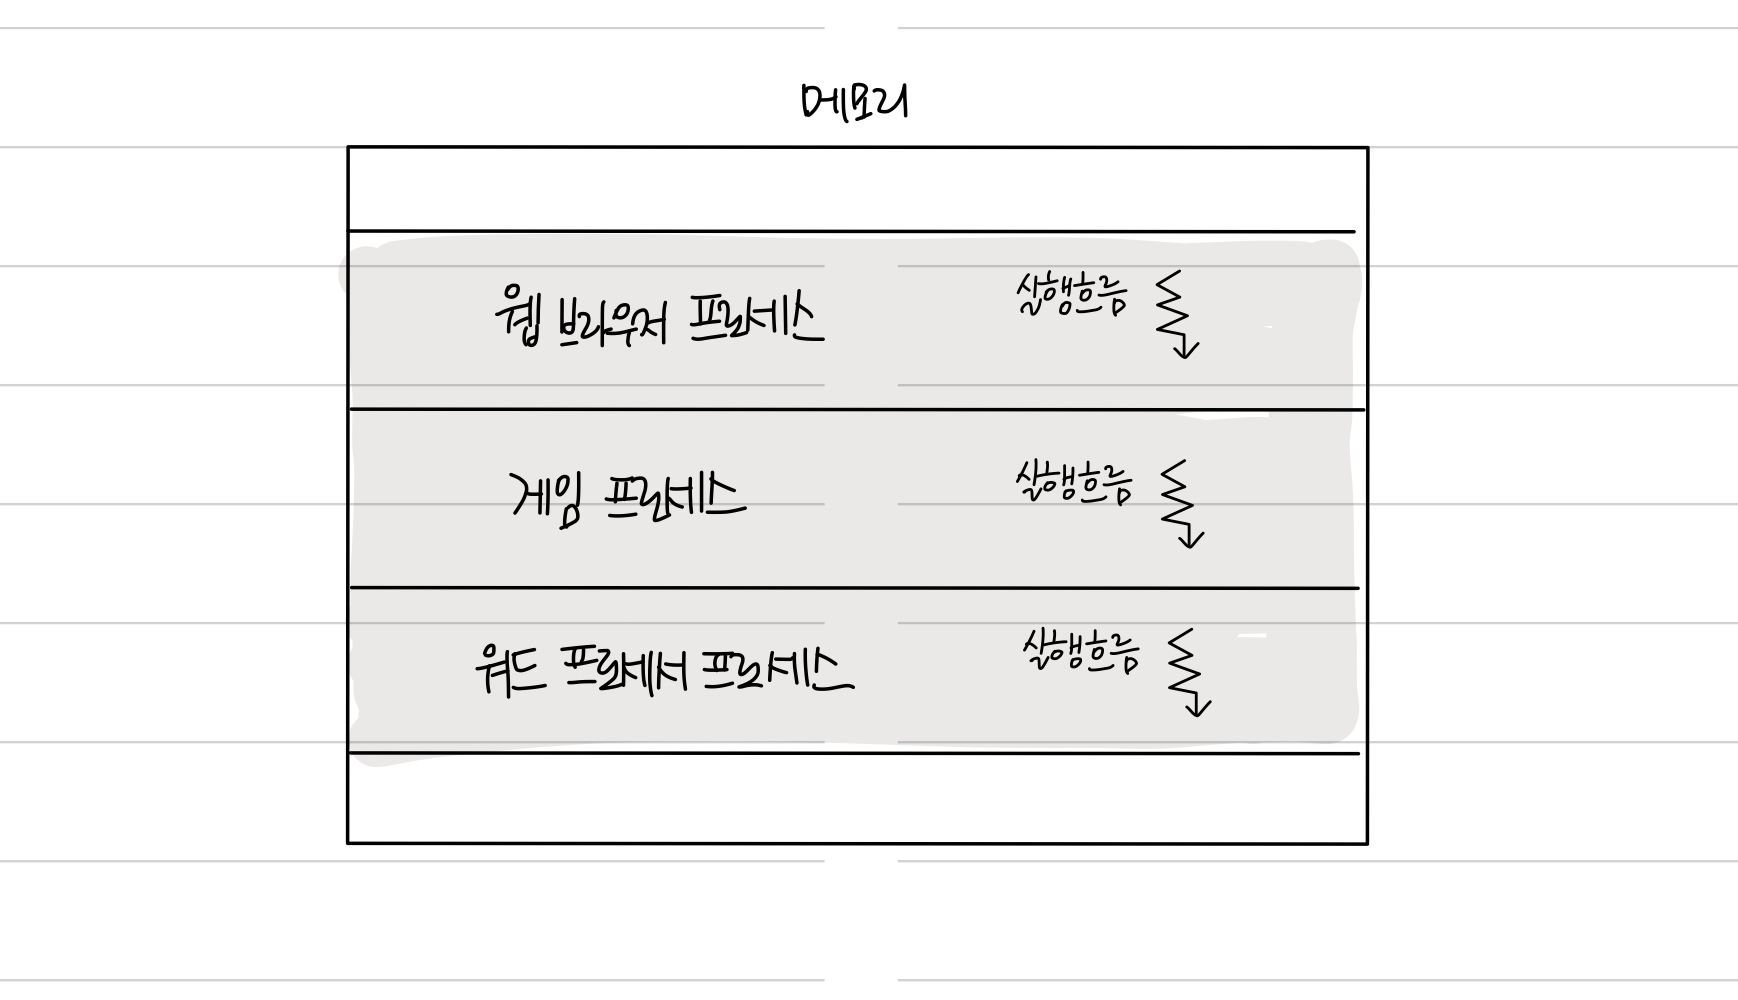 메모리
웹 브라우저 프로세스 실행흐름
게임 프로세스 실행흐름
워드 프로세서 프로세스 실행흐름